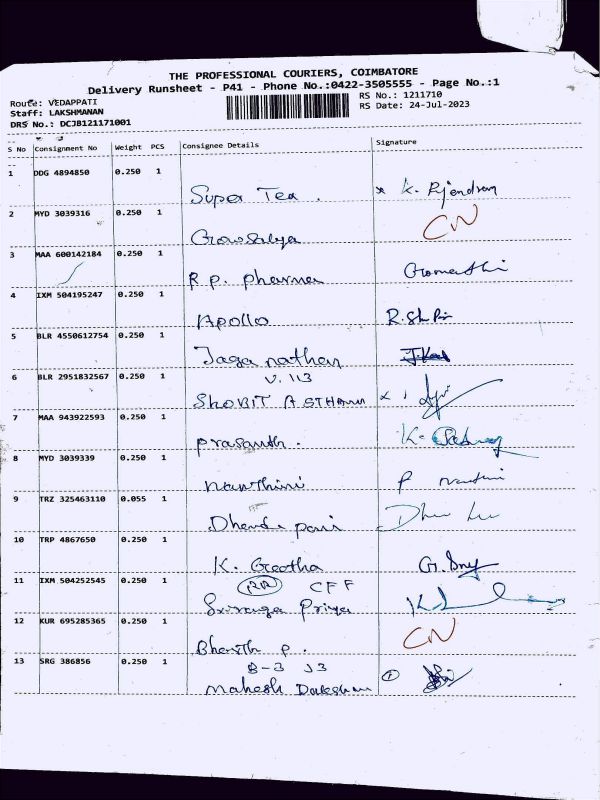 THE PROFESSIONAL COURIERS, COIMBATORE
Delivery Runsheet - P41 - Phone No.:0422-3505555 - Page No.:1
Route: VEDAPPATI RS No.: 1211710
Staff: LAKSHMANAN RS Date: 24-Jul-2023
DRS No.: DCJB121171001
S No Consignment No Weight PCS Consignee Details Signature
1 DDG 4894850 0.250 1
Super Tea . x K. Rjendran
2 MYD 3039316 0.250 1 CN
Growsalya
3 MAA 600142184 0.250 1
R p. pharma Gomathi
4 IXM 504195247 0.250 1
Apollo
5 BLR 4550612754 0.250 1
Jaga nathan
6 BLR 2951832567 0.250 1 V. 113
SHOBIT ASTHANA
7 MAA 943922593 0.250 1
prasanth .
8 MYD 3039339 0.250 1
nanthini
9 TRZ 325463110 0.055 1
Dhandapani
10 TRP 4867650 0.250 1
K. Geetha
11 IXM 504252545 0.250 1 CFF
Sriranga Priya
12 KUR 695285365 0.250 1 CN
Bharath P.
13 SRG 386856 0.250 1 B-3 J3
Mahesh Darekhan